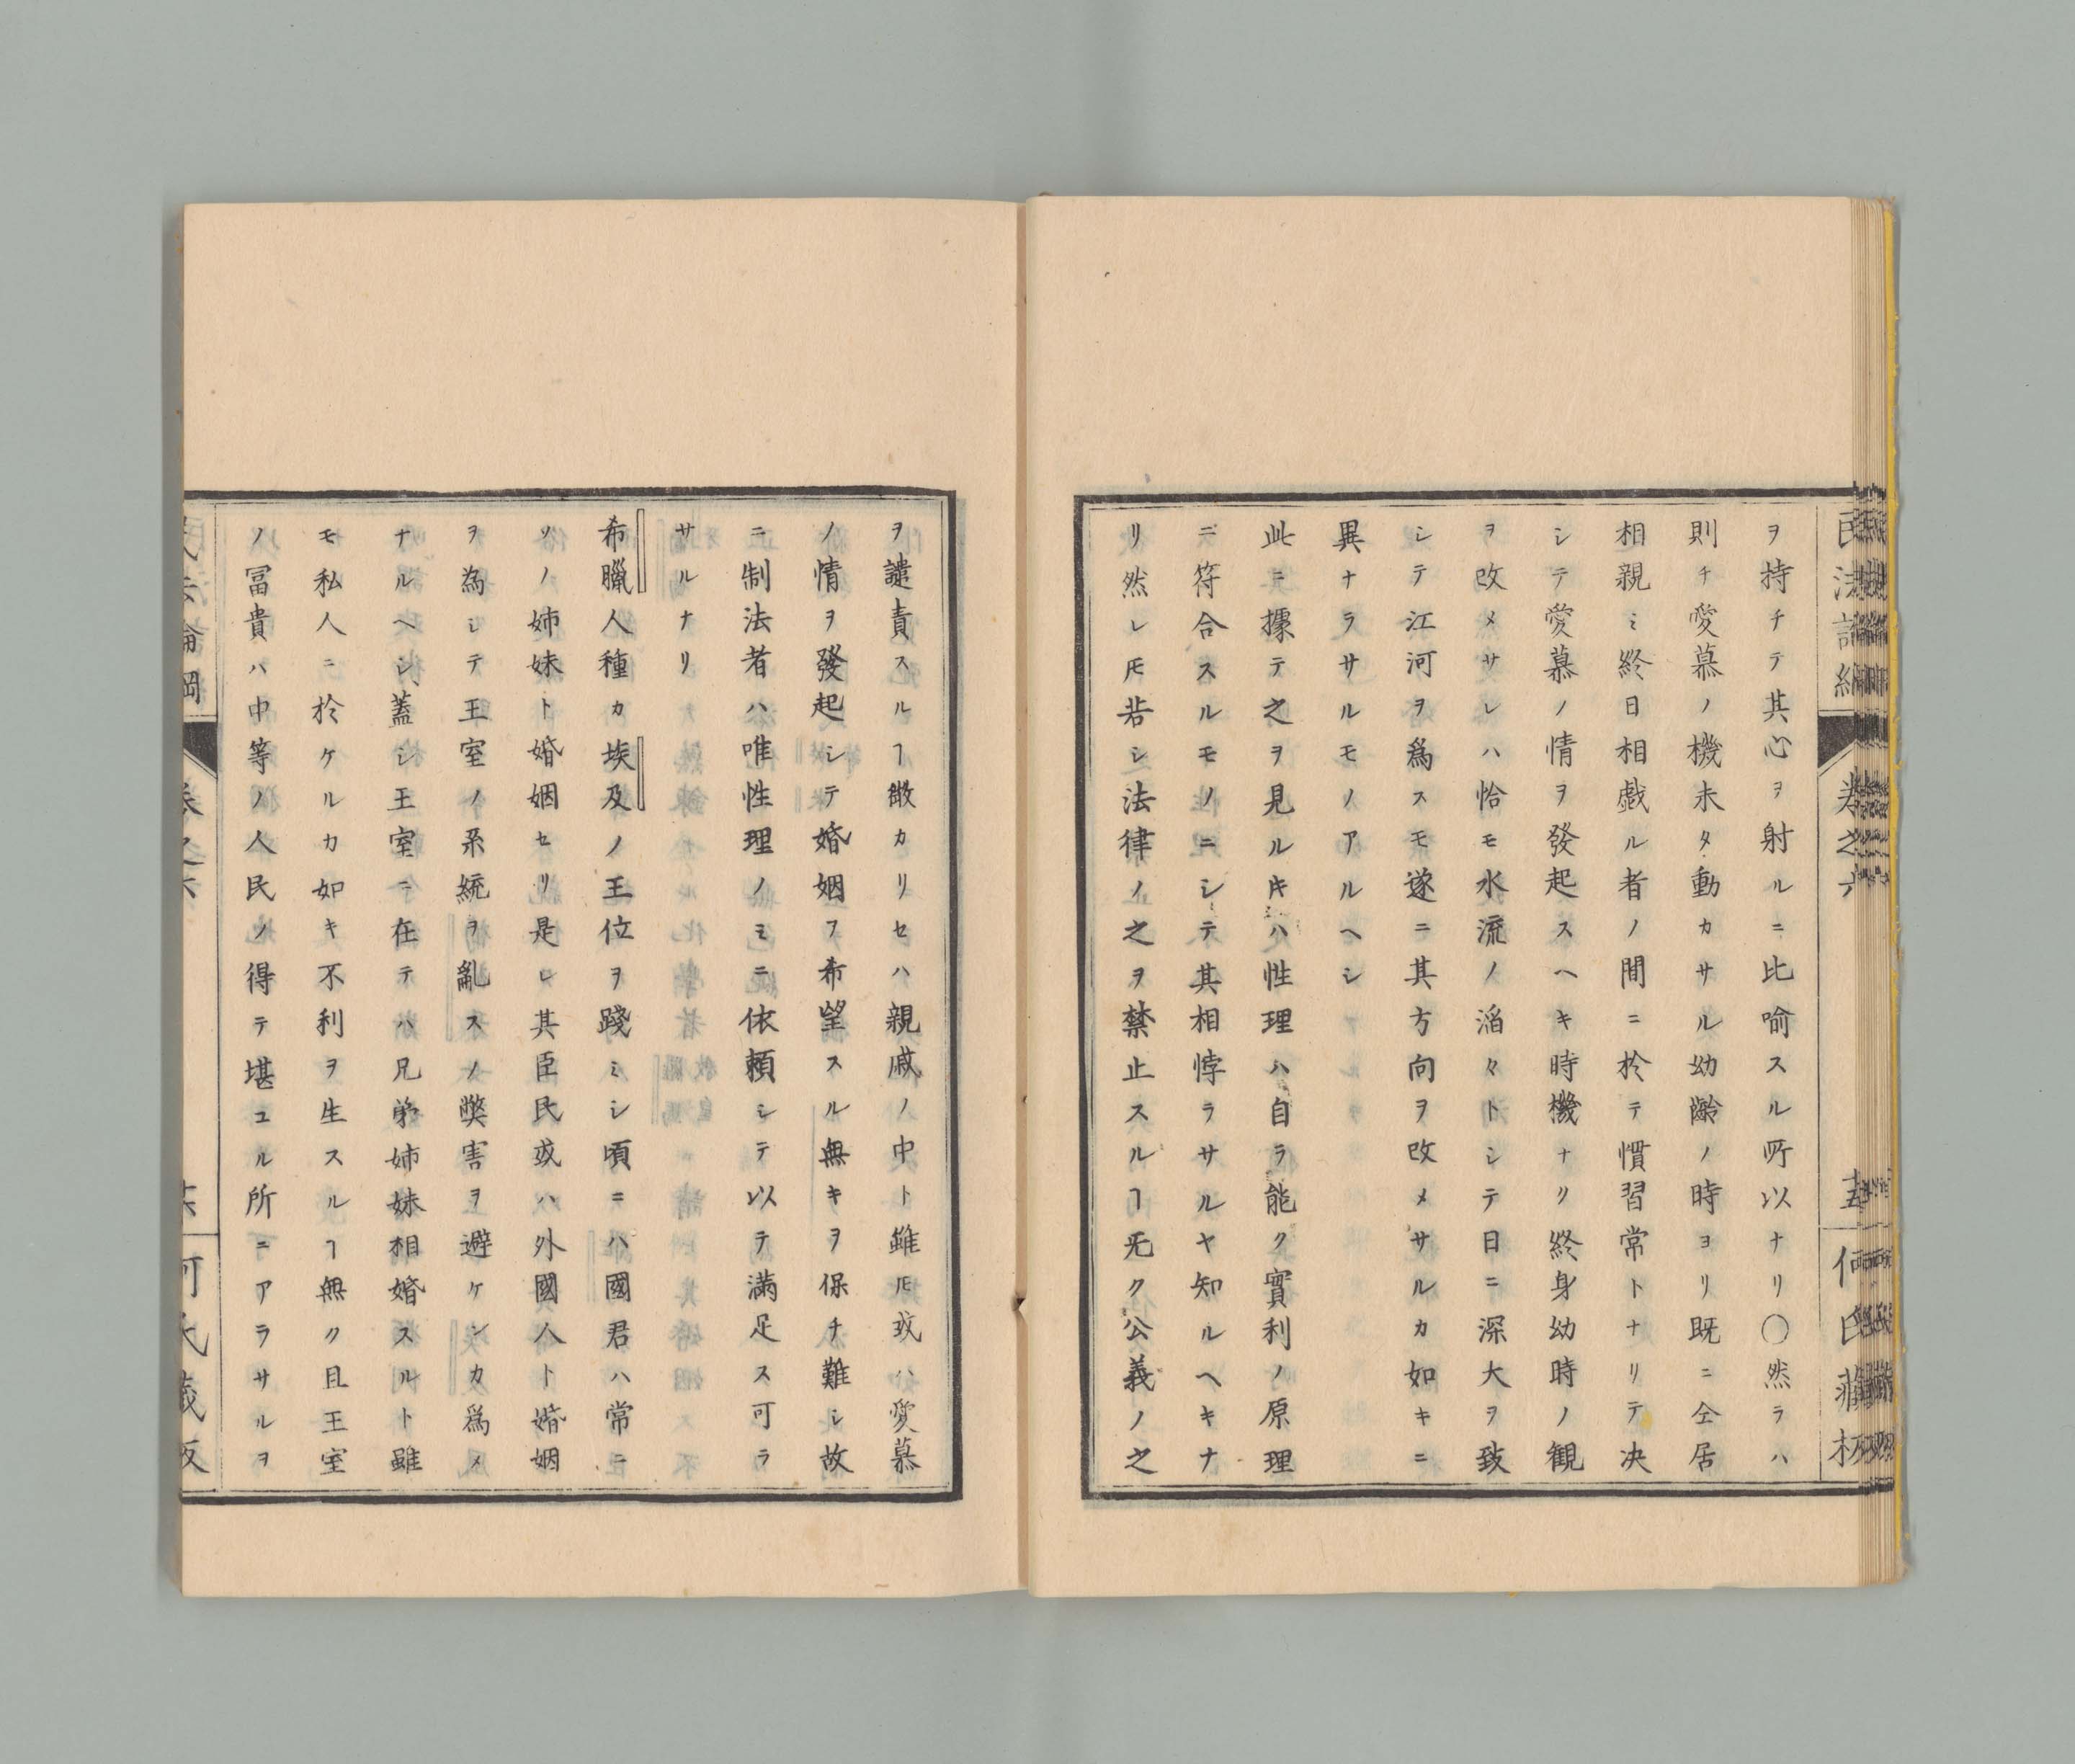 ヲ持チテ其心ヲ射ルニ比喻スル所以ナリ〇然ラハ
則チ愛慕ノ機未タ動カサル幼齡ノ時ヨリ既ニ仝居
相親ミ終日相戯ル者ノ間ニ於テ慣習常トナリテ决
シテ愛慕ノ情ヲ發起スヘキ時機ナク終身幼時ノ観
ヲ改メサレハ恰モ水流ノ滔々トシテ日ニ深大ヲ致
シテ江河ヲ爲スモ遂ニ其方向ヲ改メサルカ如キニ
異ナラサルモノアルヘシ
此ニ據テ之ヲ見ルキハ性理ハ自ラ能ク實利ノ原理
ニ符合スルモノニシテ其相悖ラサルヤ知ルヘキナ
リ然レ𪜈若シ法律ノ之ヲ禁止スルヿ旡ク公義ノ之
ヲ譴責スルヿ微カリセハ親戚ノ中ト雖𪜈或ハ愛慕
ノ情ヲ發起シテ婚姻ヲ希望スル無キヲ保チ難シ故
ニ制法者ハ唯性理ノミニ依頼シテ以テ満足ス可ラ
サルナリ
希臘人種カ埃及ノ王位ヲ踐ミシ頃ニハ國君ハ常ニ
ソノ姉妹ト婚姻セリ是レ其臣民或ハ外國人ト婚姻
ヲ為シテ王室ノ系統ヲ亂スノ弊害ヲ避ケンカ爲メ
ナルヘシ蓋シ王室ニ在テハ兄弟姉妹相婚スルト雖
モ私人ニ於ケルカ如キ不利ヲ生スルヿ無ク且王室
ノ冨貴ハ中等ノ人民ノ得テ堪ユル所ニアラサルヲ